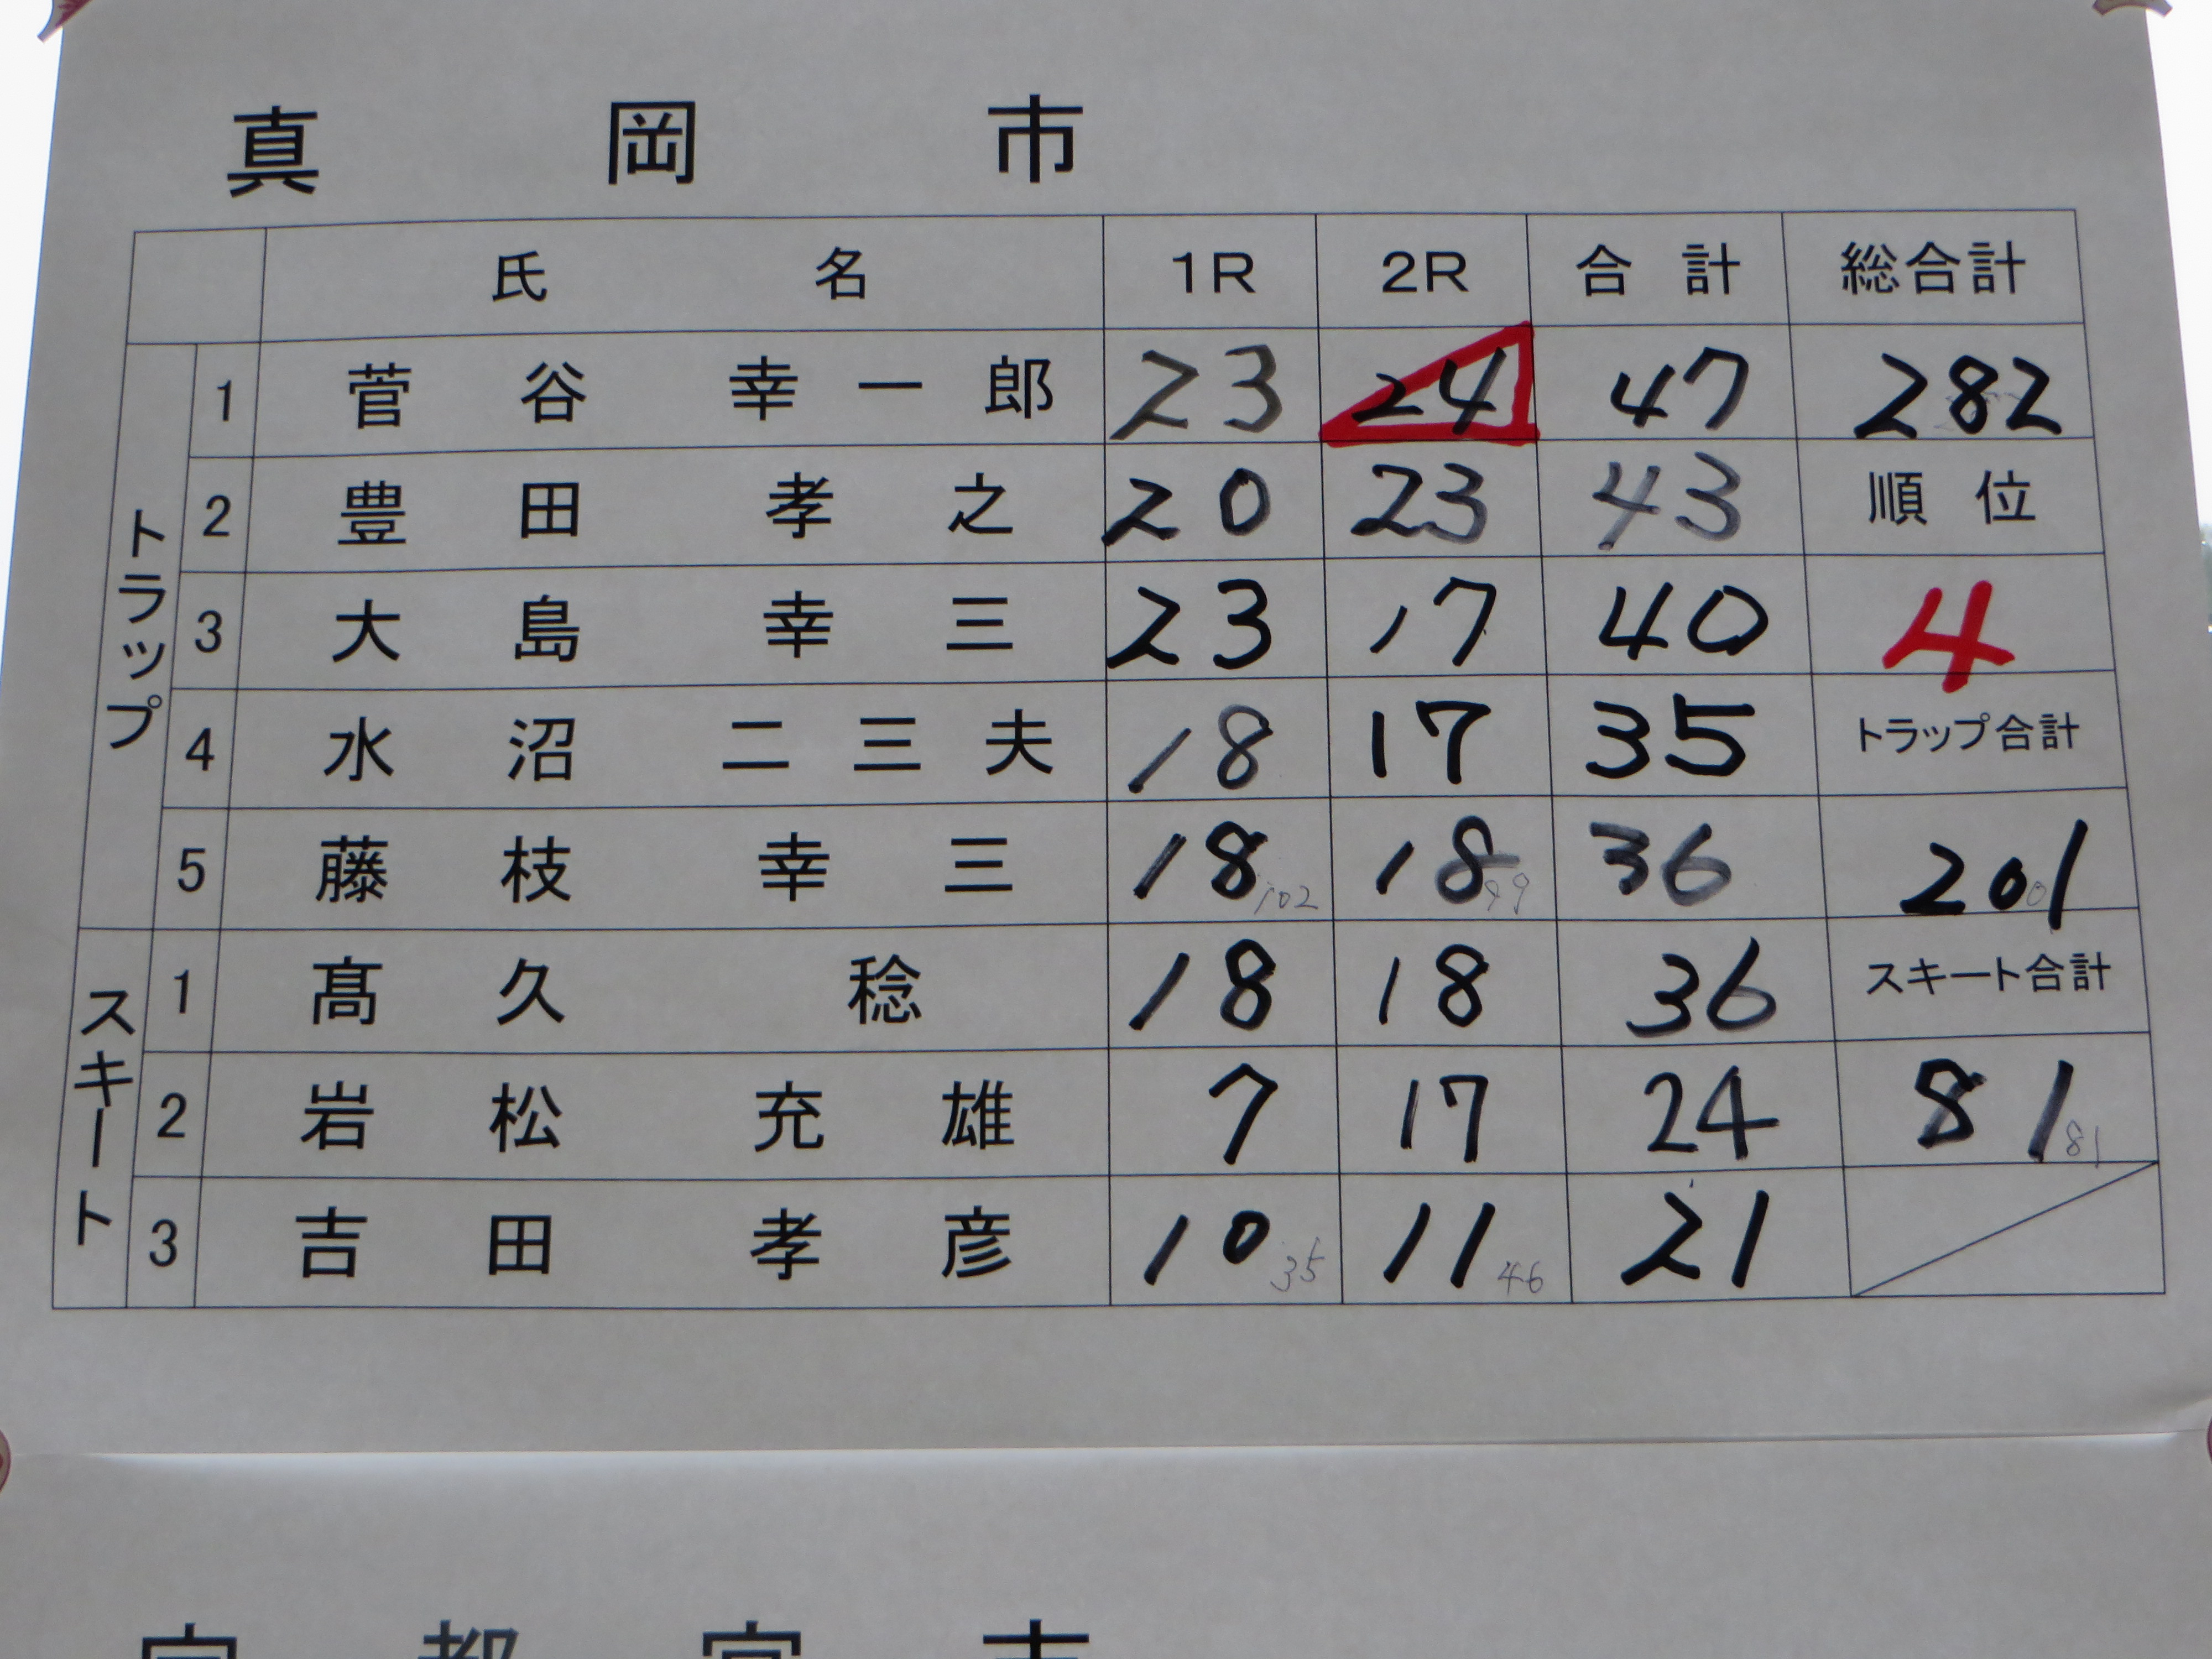 真岡市
氏名 1R 2R 合計 総合計
トラップ
1 菅谷幸一郎 23 24 47 282
2 豊田孝之 20 23 43 順位
3 大島幸三 23 17 40 4
4 水沼二三夫 18 17 35 トラップ合計
5 藤枝幸三 18 102 18 99 36 201
スキート
1 髙久稔 18 18 36 スキート合計
2 岩松充雄 7 17 24 81 81
3 吉田孝彦 10 35 11 46 21
宇都宮市